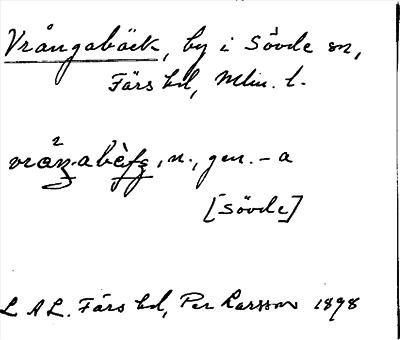 Vrångabäck, by i Sövde sn,
Färs hd, Mlm. l.
n., gen. - a
[Sövde]
L A L. Färs hd, Per Larsson 1898